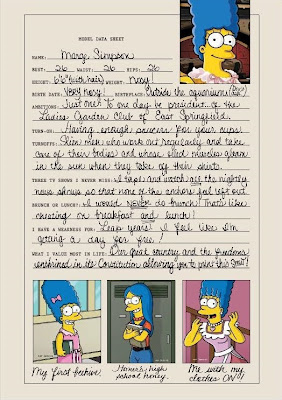 MODEL DATA SHEET
NAME: Marge Simpson
BUST: 26 WAIST: 26 HIPS: 26
HEIGHT: 6'6" (with hair) WEIGHT: Nosy!
BIRTH DATE: Very nosy! BIRTHPLACE: Outside the aquariums
AMBITIONS: Just one? To one day be president of the
Ladies Garden Club of East Springfield.
TURN-ONS: Having enough saucers for your cups.
TURNOFFS: Slim men who work out regularly and take
care of their bodies and whose sleek muscles gleam
in the sun when they take off their shirts.
THREE TV SHOWS I NEVER MISS: I tape and watch all the nightly
news shows so that none of the anchors feel left out.
BRUNCH OR LUNCH?: I would NEVER do brunch! That's like
cheating on breakfast and lunch!
I HAVE A WEAKNESS FOR: Leap years! I feel like I'm
getting a day for free!
WHAT I VALUE MOST IN LIFE: Our great country and the freedoms
enshrined in its Constitution allowing you to print this smut!
My first beehive.
Homer's high
school honey.
Me with my
clothes ON!